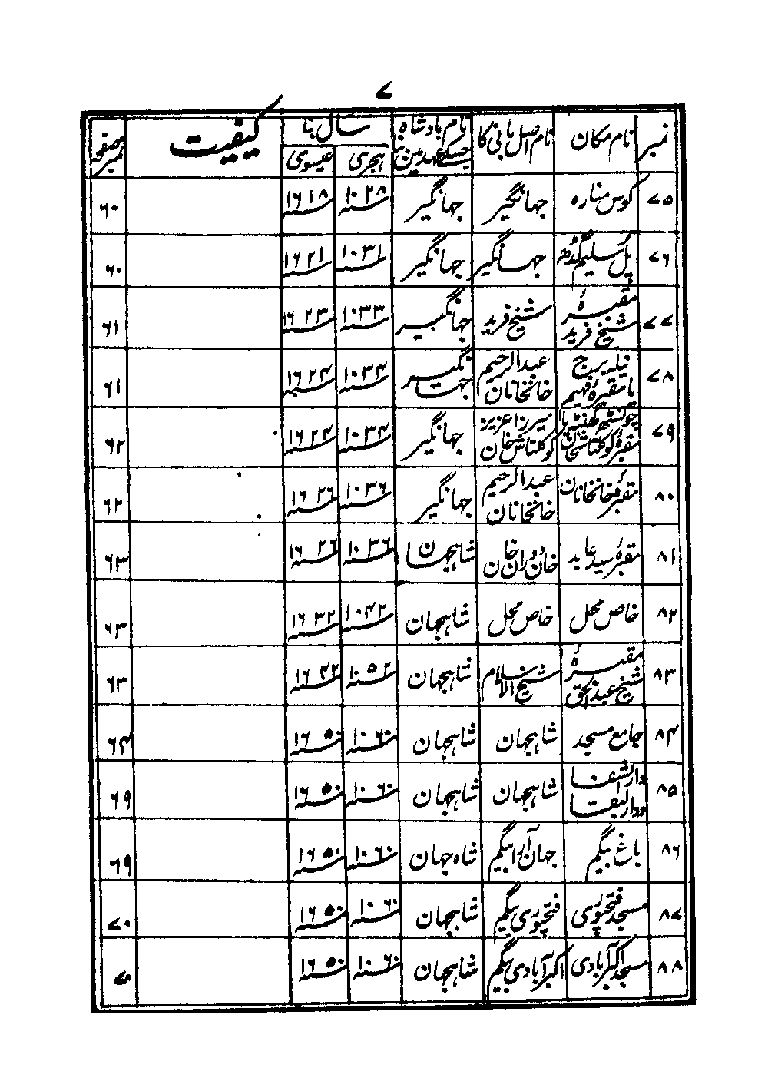 ۷
نمبر | نام مکان | نام اصل بانی کا | نام بادشاہ جسکے عہد میں بنا | سال بنا ہجری | سال بنا عیسوی | کیفیت | نمبر صفحہ
۷۵ | کوس منارہ | جہانگیر | جہانگیر | ۱۰۲۸ | ۱۶۱۸ | | ۶۰
۷۶ | پل سلیم گڈھ | جہانگیر | جہانگیر | ۱۰۳۱ | ۱۶۲۱ | | ۶۰
۷۷ | مقبرۂ شیخ فرید | شیخ فرید | جہانگیر | ۱۰۳۳ | ۱۶۲۳ | | ۶۱
۷۸ | نیلہ برج یا مقبرۂ فہیم | عبدالرحیم خانخانان | جہانگیر | ۱۰۳۴ | ۱۶۲۴ | | ۶۱
۷۹ | چونسٹھ کھنبہ یا مقبرۂ کوکلتاش خان | میرزا عزیز کوکلتاش خان | جہانگیر | ۱۰۳۴ | ۱۶۲۴ | | ۶۲
۸۰ | مقبرۂ خانخانان | عبدالرحیم خانخانان | جہانگیر | ۱۰۳۶ | ۱۶۲۶ | | ۶۲
۸۱ | مقبرۂ سید عابد | خان دوران خان | شاہجہان | ۱۰۳۶ | ۱۶۲۶ | | ۶۳
۸۲ | خاص محل | خاص محل | شاہجہان | ۱۰۴۲ | ۱۶۳۲ | | ۶۳
۸۳ | مقبرۂ شیخ عبدالحق | شیخ الاسلام | شاہجہان | ۱۰۵۲ | ۱۶۴۲ | | ۶۳
۸۴ | جامع مسجد | شاہجہان | شاہجہان | ۱۰۶۰ | ۱۶۵۰ | | ۶۴
۸۵ | دارالشفا و دارالبقا | شاہجہان | شاہجہان | ۱۰۶۰ | ۱۶۵۰ | | ۶۹
۸۶ | باغ بیگم | جہان آرا بیگم | شاہ جہان | ۱۰۶۰ | ۱۶۵۰ | | ۶۹
۸۷ | مسجد فتحپوری | فتحپوری بیگم | شاہجہان | ۱۰۶۰ | ۱۶۵۰ | | ۷۰
۸۸ | مسجد اکبرآبادی | اکبرآبادی بیگم | شاہجہان | ۱۰۶۰ | ۱۶۵۰ | |